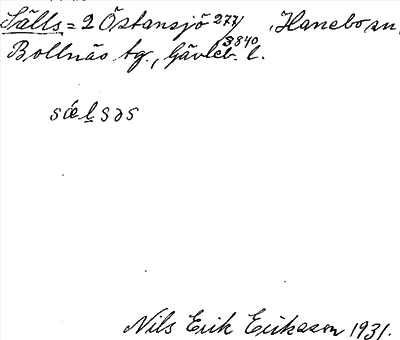 Sälls = 2 Östansjö 277/3840, Hanebo sn,
Bollnäs tg., Gävleb. l.
sælsəs
Nils Erik Eriksson 1931.